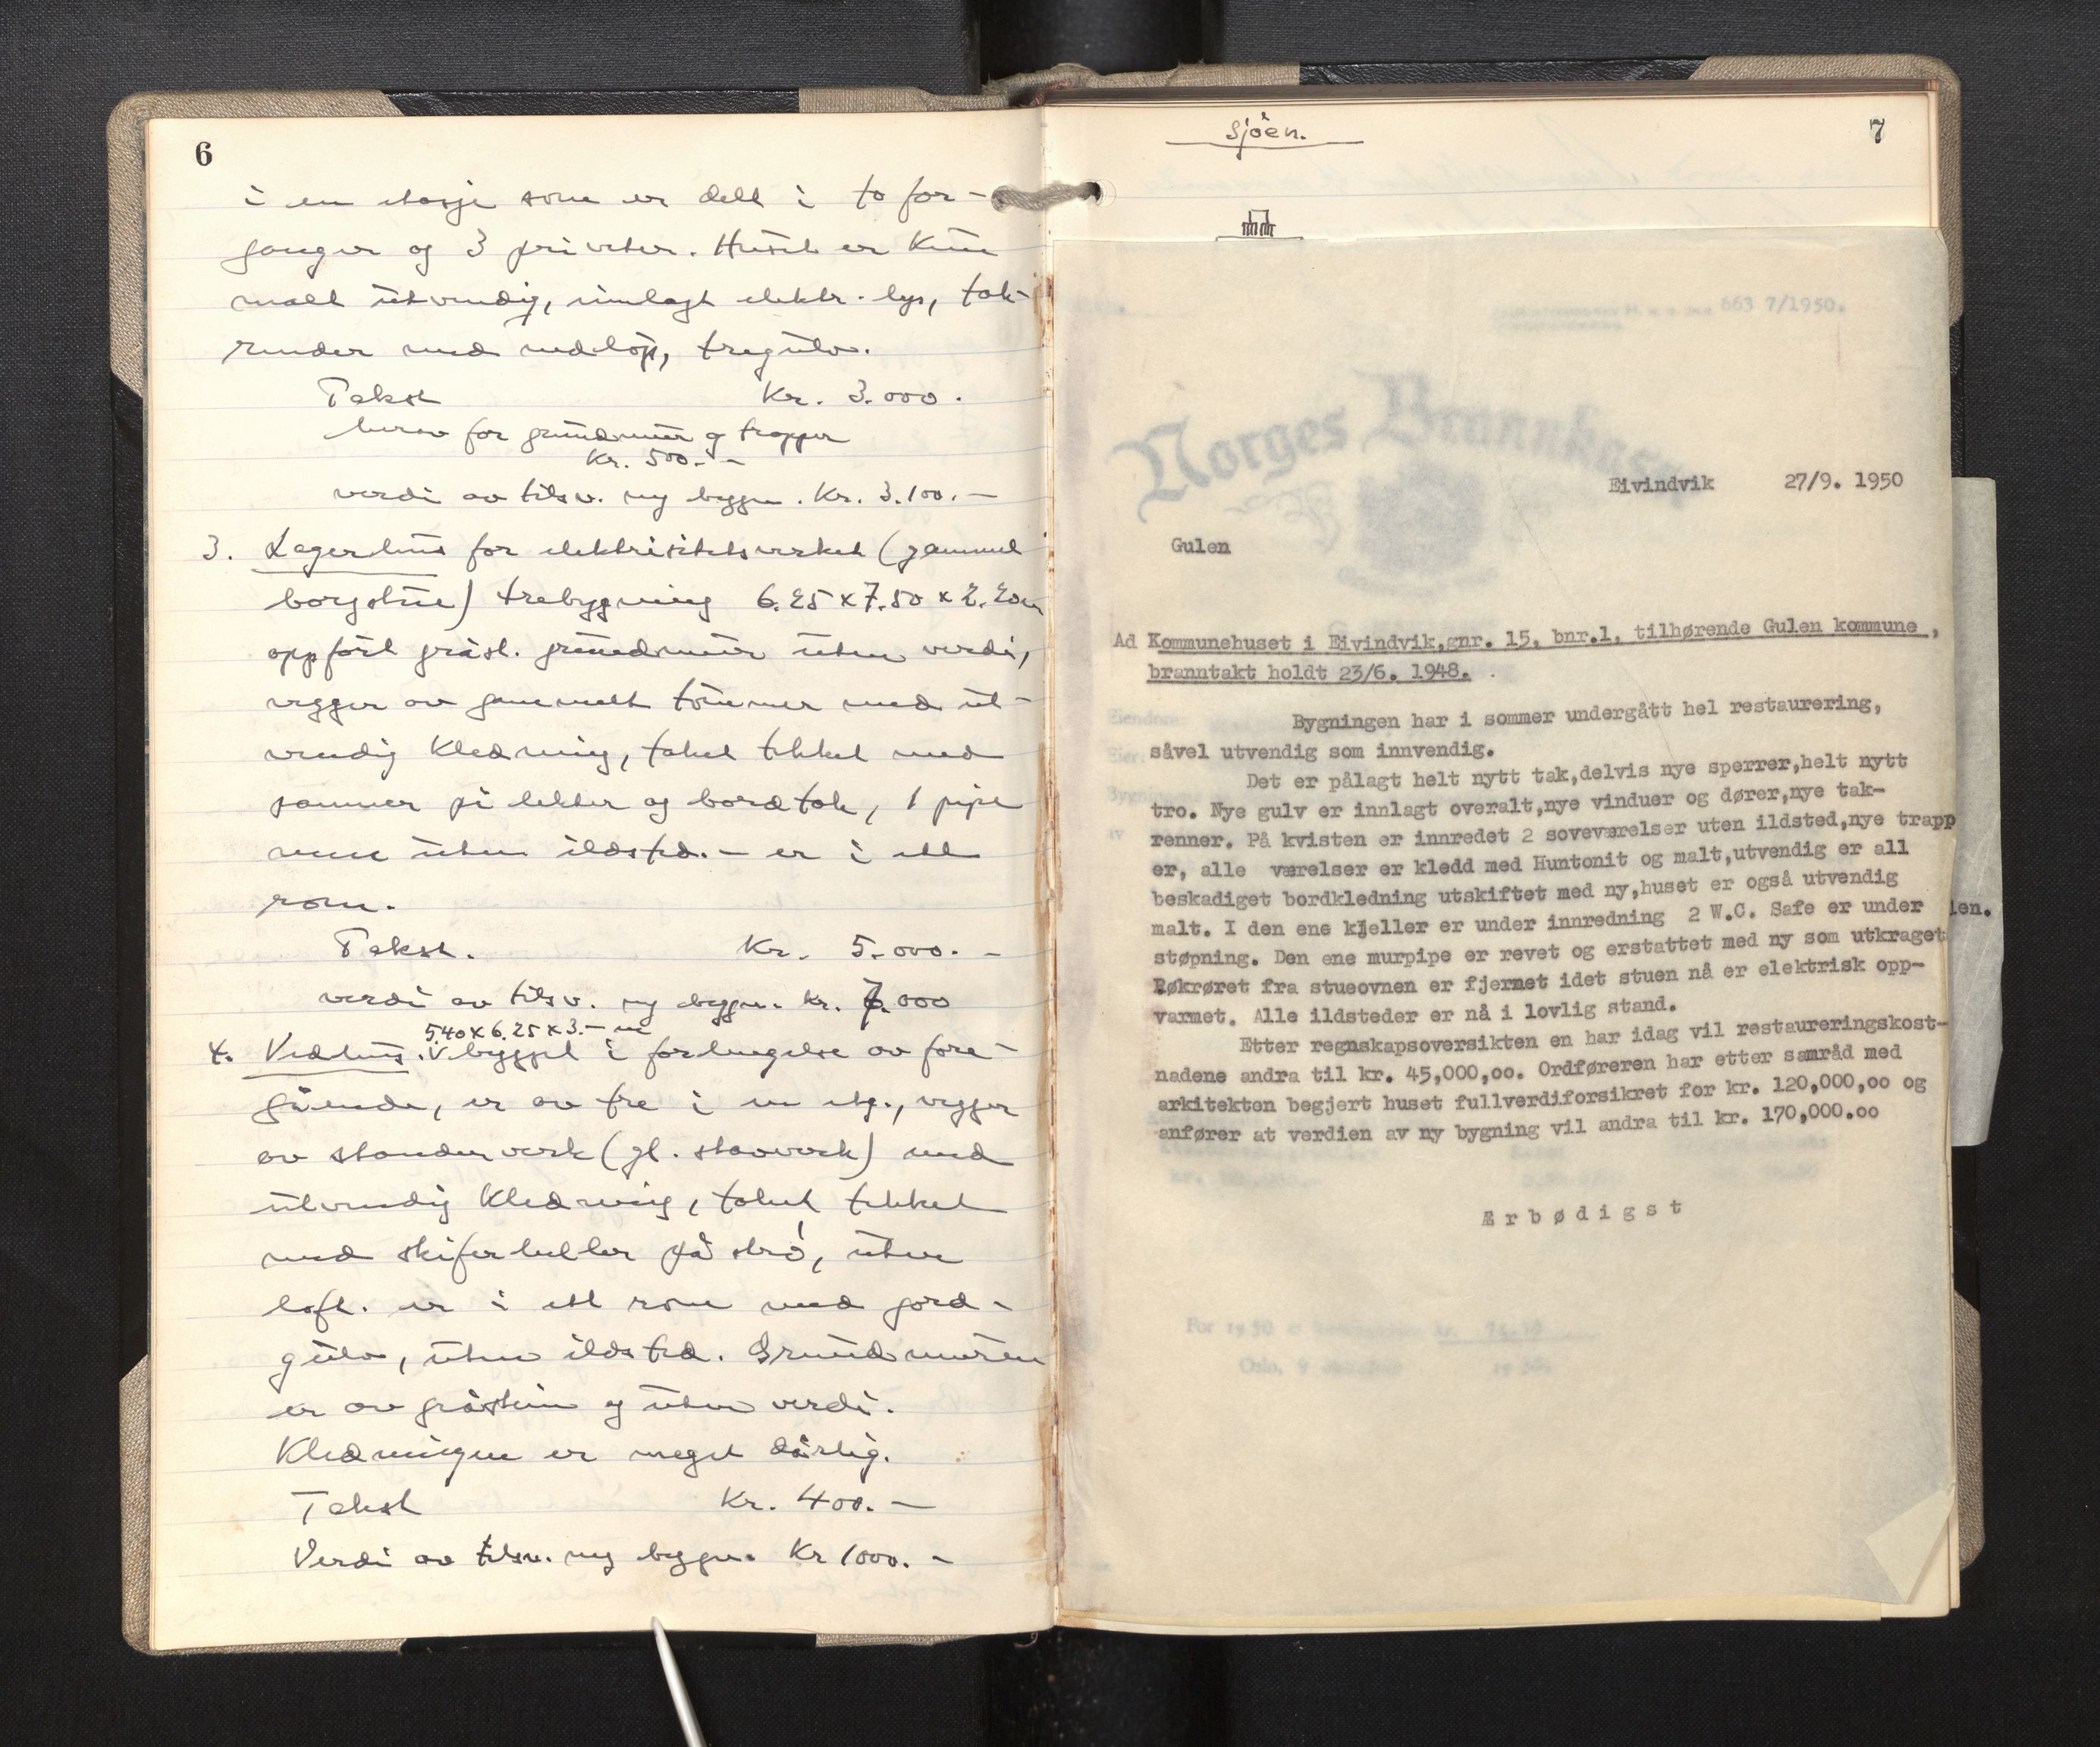 6
i en etasje som er delt i to for-
ganger og 3 priveter. Huset er kun
malt utvendig, innlagt elektr. lys, tak-
render med nedløp, tregulv.
Takst Kr. 3.000.
herav for grundmur og trapper
Kr. 500.-
verdi av tilsv. ny bygn. Kr. 3.100.-
3. Lagerhus for elektrisitetsverket (gammel
borgstue) trebygning 6.25 x 7.50 x 2.20m
oppført gråst. grundmur uten verdi,
vegger av gammelt tømmer med ut-
vendig kledning, taket tekket med
panner på lekter og bordtak, 1 pipe
men uten ildsted. - er i ett
rom.
Takst. Kr. 5.000.-
verdi av tilsv. ny bygn. Kr. 7.000
5.40 x 6.25 x 3.- m
4. Vedhus. V bygget i forlengelse av fore-
gående, er av tre i en etg., vegger
av standerverk (gl. stavverk) med
utvendig kledning, taket tekket
med skiferheller på stró, uten
loft. er i ett rom med jord-
gulv, uten ildsted. Grundmuren
er av gråstein og uten verdi.
Kledningen er meget dårlig.
Takst Kr. 400.-
Verdi av tilsv. ny bygn. Kr 1000.-
7
Sjøen.
663 7/1950.
Norges Brannkasse
Eivindvik 27/9. 1950
Gulen
Ad Kommunehuset i Eivindvik,gnr. 15, bnr.1, tilhørende Gulen kommune ,
branntakt holdt 23/6. 1948.
Bygningen har i sommer undergått hel restaurering,
såvel utvendig som innvendig.
Det er pålagt helt nytt tak,delvis nye sperrer,helt nytt
tro. Nye gulv er innlagt overalt,nye vinduer og dører,nye tak-
renner. På kvisten er innredet 2 soveværelser uten ildsted,nye trapp
er, alle værelser er kledd med Huntonit og malt,utvendig er all
beskadiget bordkledning utskiftet med ny,huset er også utvendig
malt. I den ene kjeller er under innredning 2 W.C. Safe er under
støpning. Den ene murpipe er revet og erstattet med ny som utkraget
Røkrøret fra stueovnen er fjernet idet stuen nå er elektrisk opp-
varmet. Alle ildsteder er nå i lovlig stand.
Etter regnskapsoversikten en har idag vil restaureringskost-
nadene andra til kr. 45,000,oo. Ordføreren har etter samråd med
arkitekten begjert huset fullverdiforsikret for kr. 120,000,oo og
anfører at verdien av ny bygning vil andra til kr. 170,000.oo
Ærbødigst